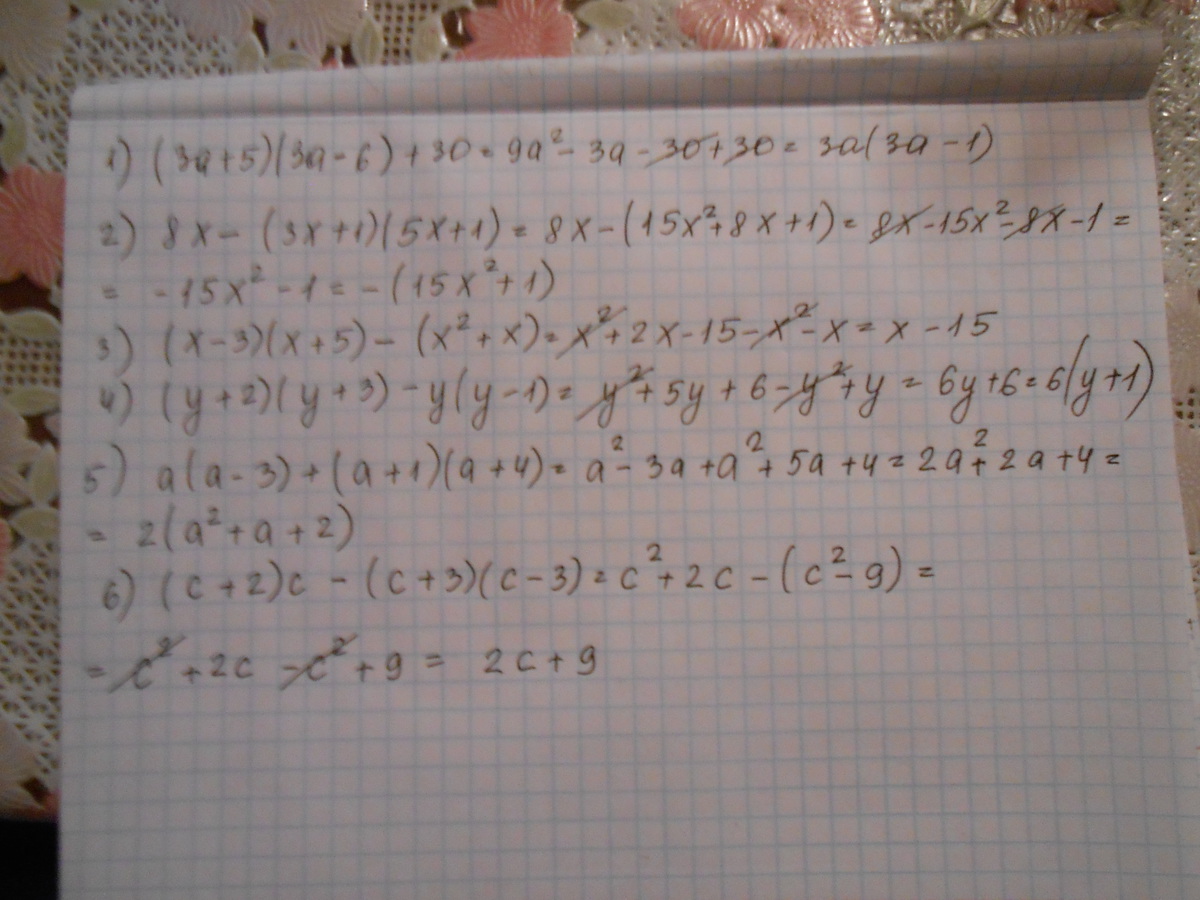 1) (3a+5)(3a-6)+30=9a²-3a-30+30=3a(3a-1)
2) 8x-(3x+1)(5x+1)=8x-(15x²+8x+1)=8x-15x²-8x-1=
= -15x²-1=-(15x²+1)
3) (x-3)(x+5)-(x²+x)=x²+2x-15-x²-x=x-15
4) (y+2)(y+3)-y(y-1)=y²+5y+6-y²+y=6y+6=6(y+1)
5) a(a-3)+(a+1)(a+4)=a²-3a+a²+5a+4=2a²+2a+4=
= 2(a²+a+2)
6) (c+2)c-(c+3)(c-3)=c²+2c-(c²-9)=
= c²+2c-c²+9=2c+9